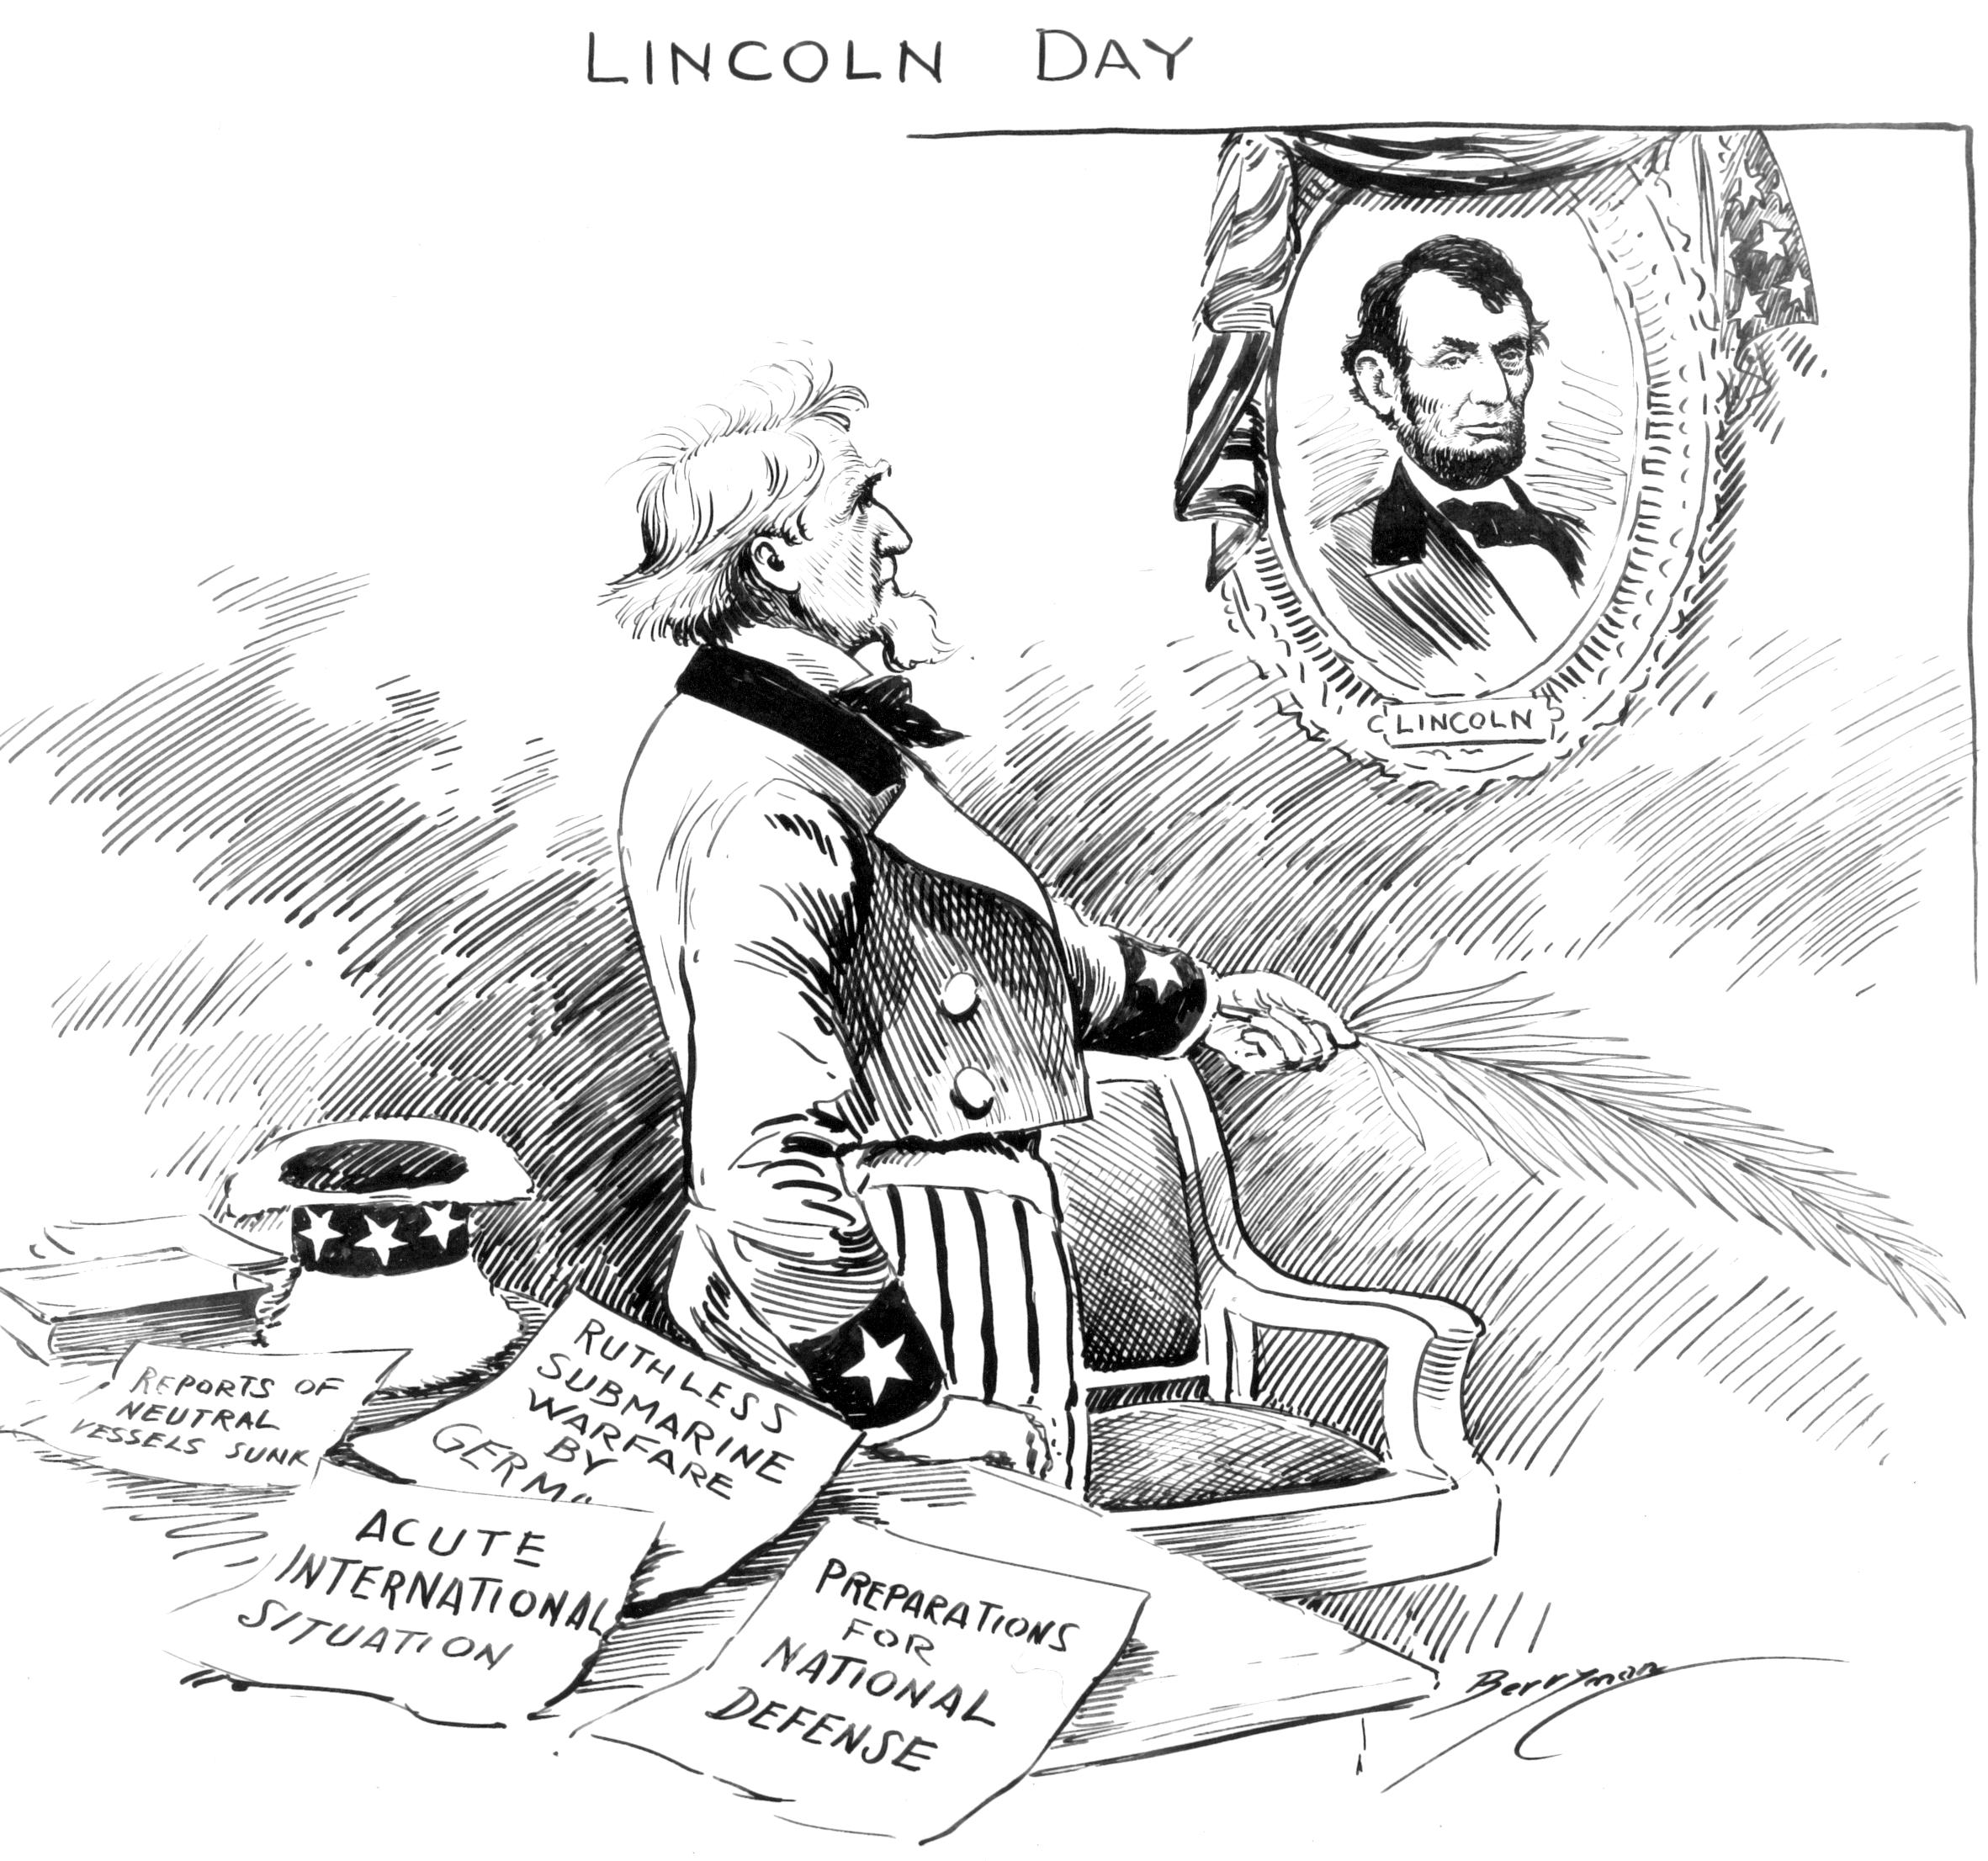 LINCOLN DAY
LINCOLN
REPORTS OF
NEUTRAL
VESSELS SUNK
RUTHLESS
SUBMARINE
WARFARE
BY
GERM
ACUTE
INTERNATIONAL
SITUATION
PREPARATIONS
FOR
NATIONAL
DEFENSE
Berryman